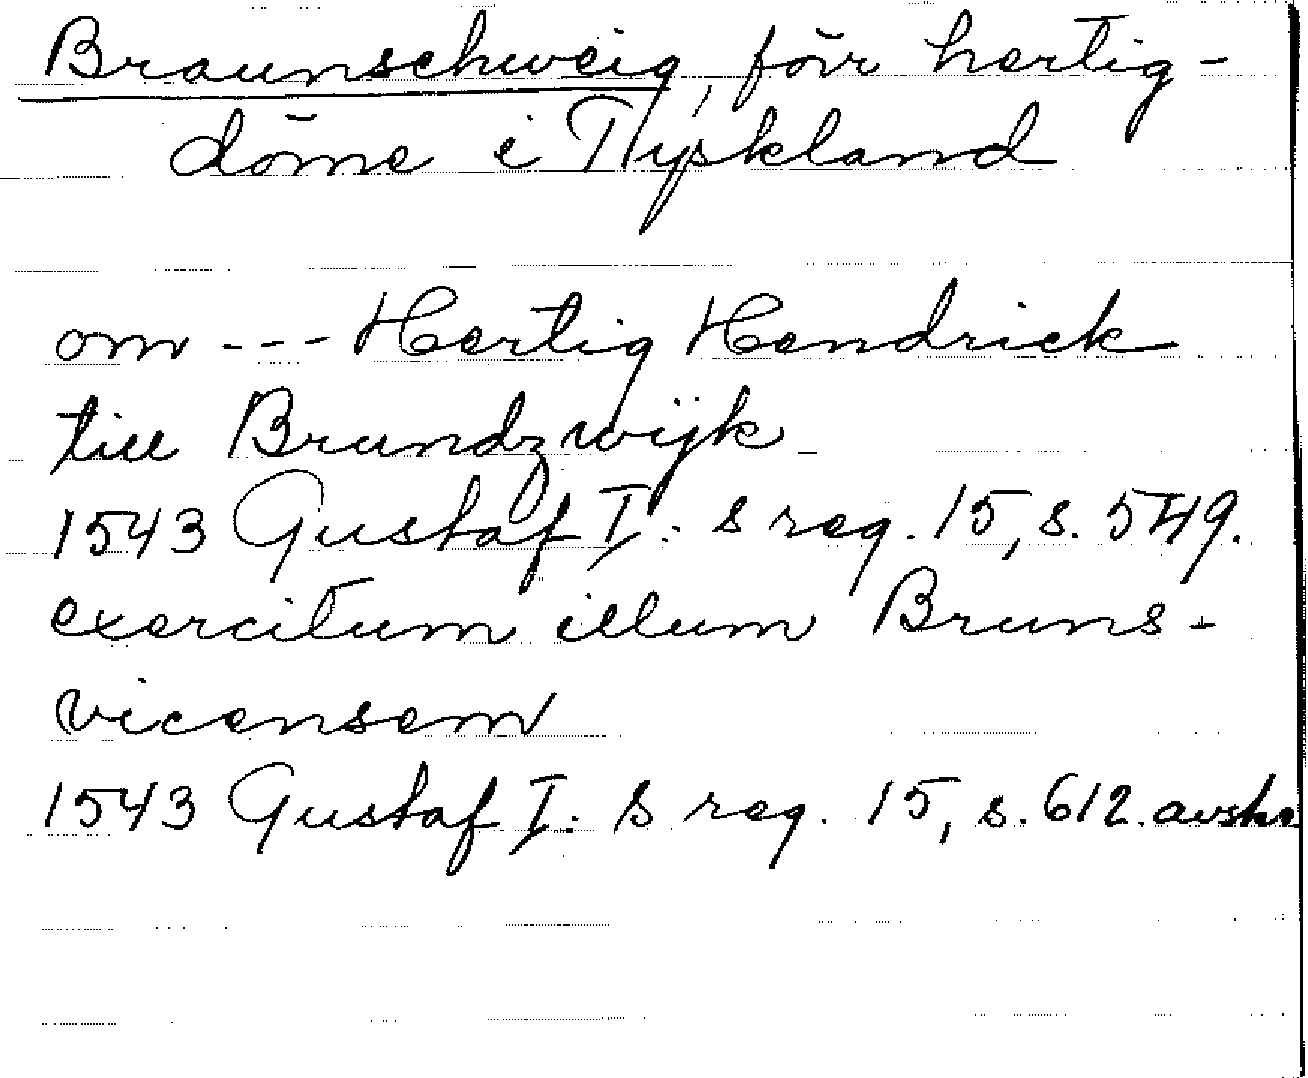 Braunschweig, förr hertig-
döme i Tyskland
om --- Hertig Hendrick
till Brundzwijk
1543 Gustaf I:s reg. 15, s. 549.
exercitum illum Bruns-
vicensem
1543 Gustaf I:s reg. 15, s. 612. avskr